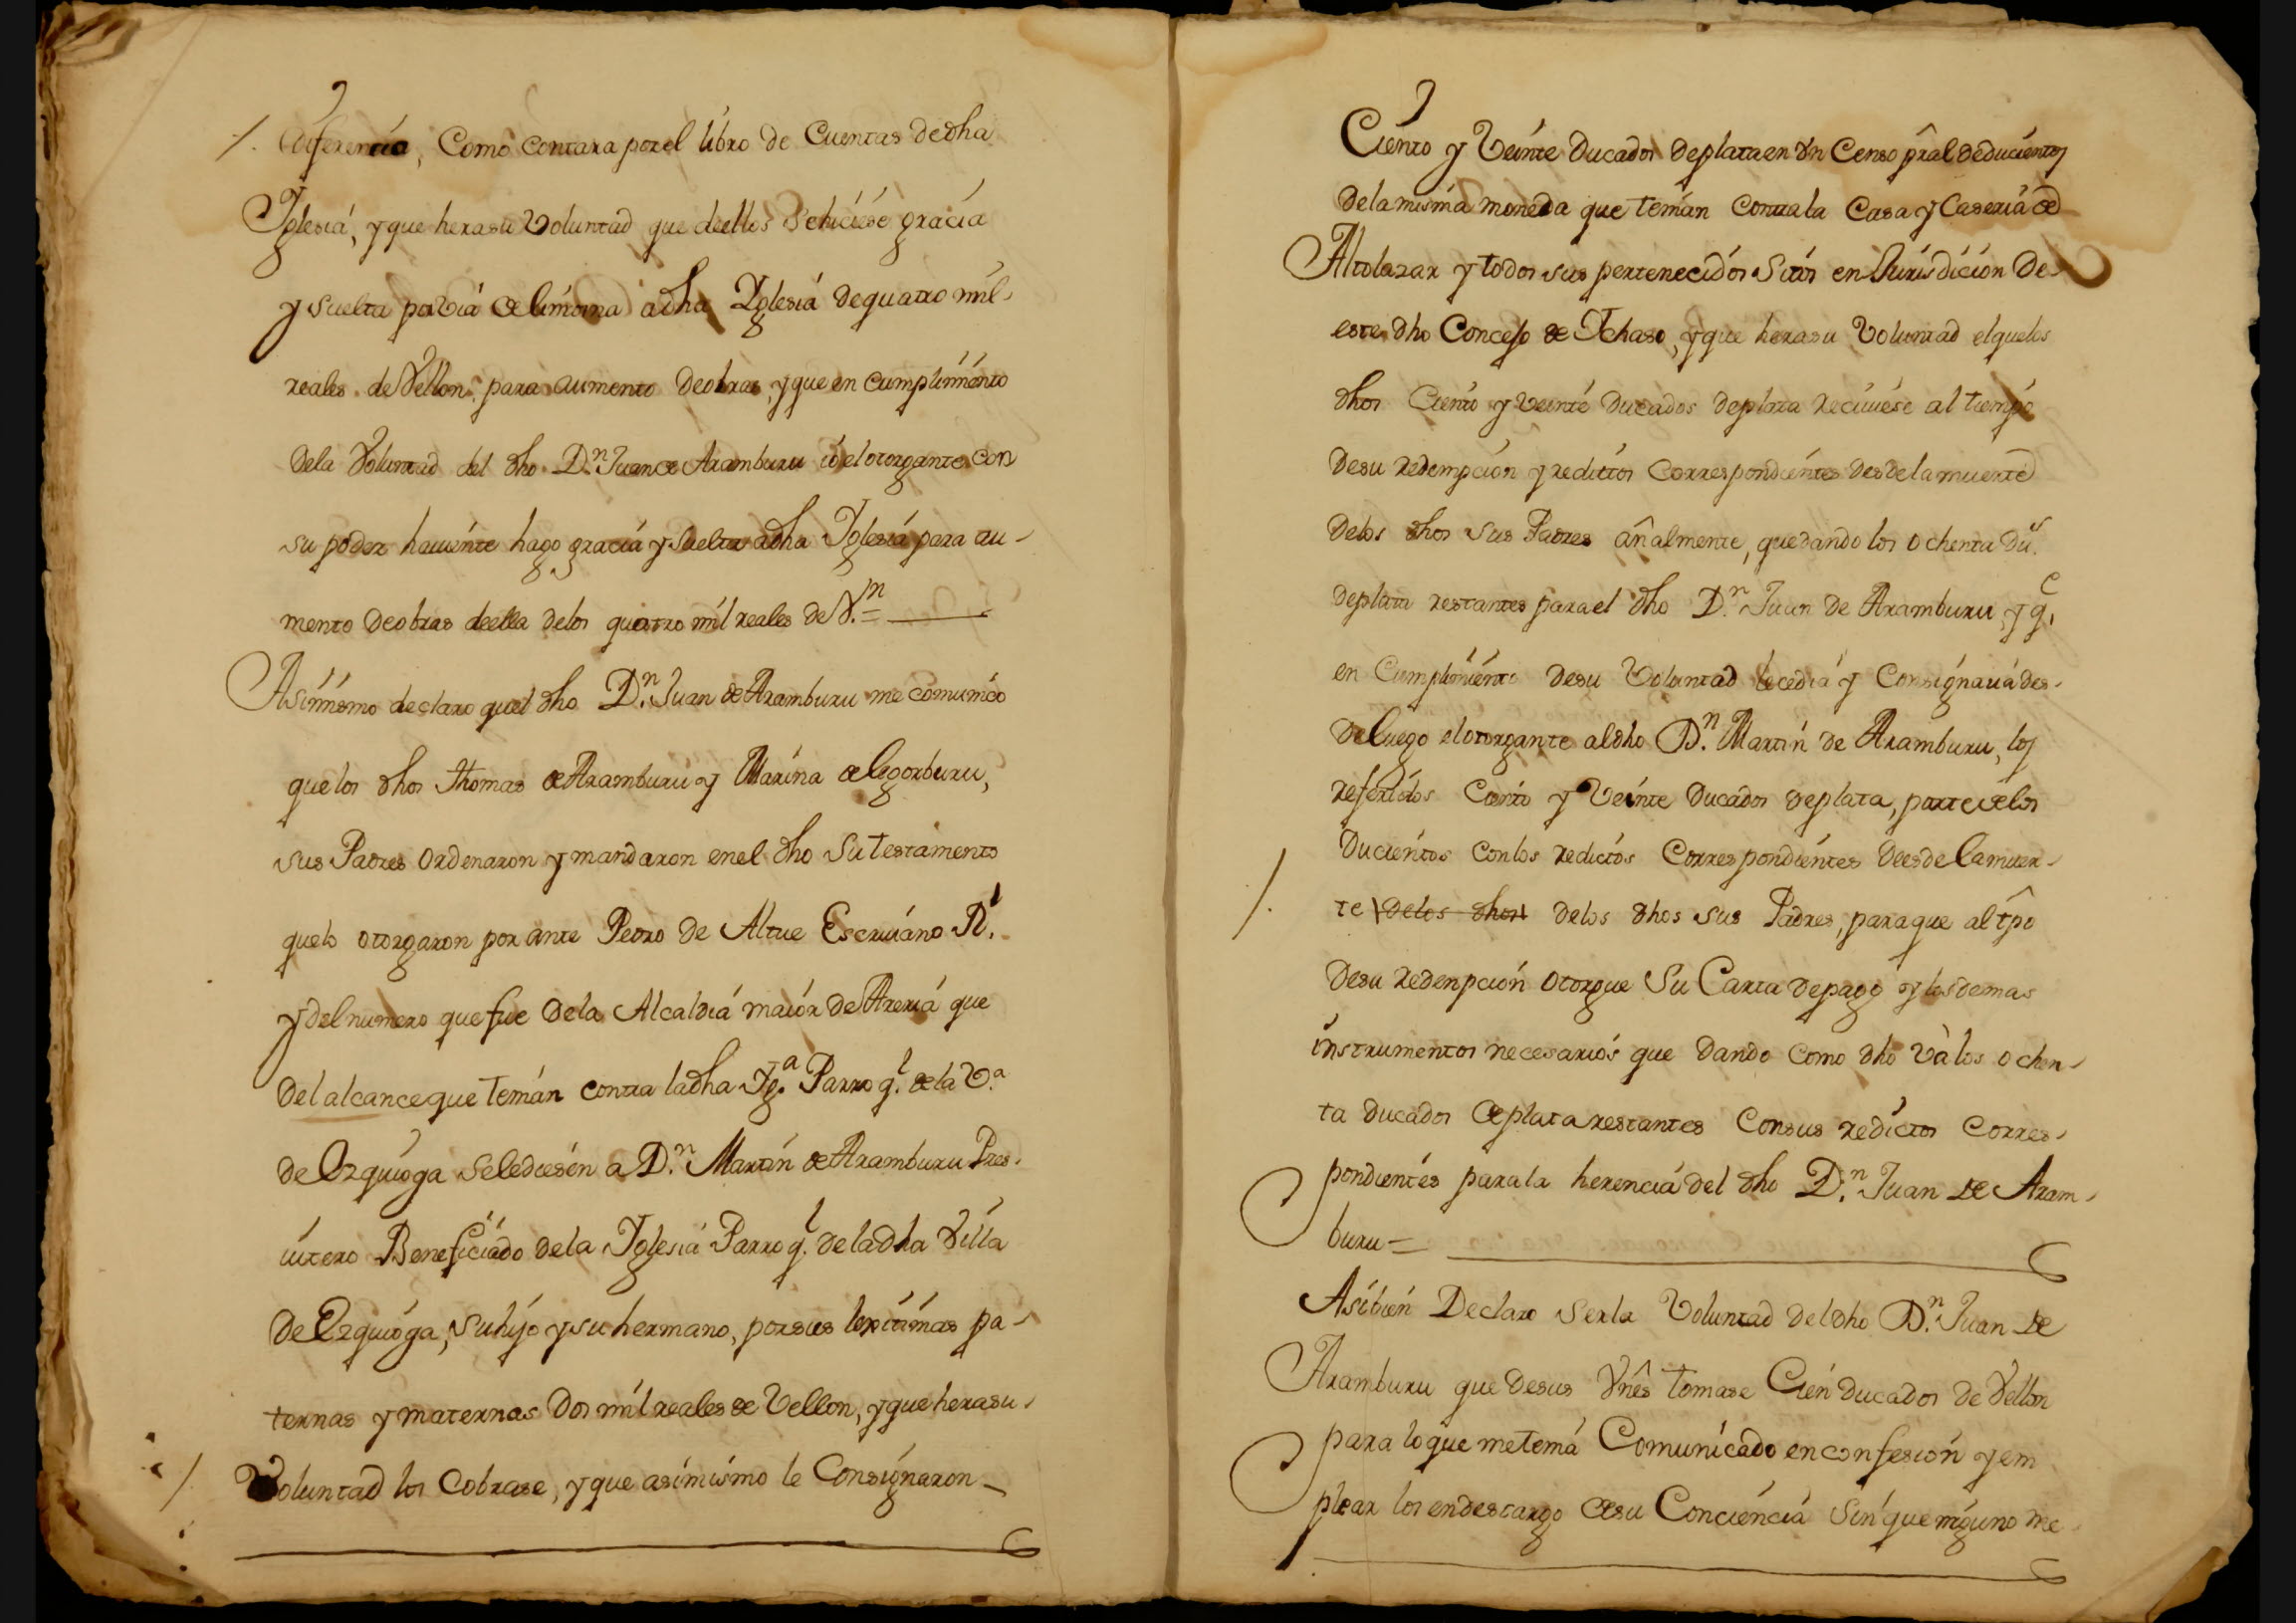 diferencia, Como contara por el libro de Cuentas de dha
Iglesia, y que hera su Voluntad que de ellos se hiciese gracia
y suelta por via de limosna a dha Yglesia de quatro mil
reales de Vellon, para aumento de obras, y que en cumplimiento
de la Voluntad del dho D.n Juan de Aramburu io el otorgante con
su poder haviente hago gracia y suelta a dha Yglesia para au-
mento de obras de ella de los quatro mil reales de V.n =
Asimismo declaro que el dho D.n Juan de Aramburu me comunico
que los dhos Thomas de Aramburu y Marina de Legorburu,
sus Padres ordenaron y mandaron en el dho su testamento
que lo otorgaron por ante Pedro de Altue Escrivano R.l
y del numero que fue de la Alcaldia maior de Areria que
del alcance que tenian contra la dha Yg.a Parroq.l de la V.a
de Ezquioga se le diesen a D.n Martin de Aramburu Pres-
vitero Beneficiado de la Yglesia Parroq.l de la dha Villa
de Ezquioga, su hijo y su hermano, por sus lexitimas pa-
ternas y maternas dos mil reales de Vellon, y que hera su
Voluntad los Cobrase, y que asimismo le Consignaron
Ciento y Veinte Ducados de plata en Un Censo pral de ducientos
de la misma moneda que tenian contra la Casa y Caseria de
Altolazar y todos sus pertenecidos Sitos en Jurisdicion de
este dho Concejo de Ychaso, y que hera su Voluntad el que los
dhos Ciento y veinte Ducados de plata reciviese al tiempo
de su redempcion y redittos Correspondientes desde la muerte
de los dhos sus Padres añalmente, quedando los ochenta du.s
de plata restantes para el dho D.n Juan de Aramburu, y q.e
en Cumplimiento de su Voluntad le cedia y Consignava des-
de luego el otorgante al dho D.n Martin de Aramburu, los
referidos Ciento y Veinte Ducados de plata, parte de los
Ducientos con los redictos Correspondientes deesde la muer-
te de los dhos de los dhos sus Padres, para que al tpo
de su redenpcion otorgue Su Carta de pago y los demas
instrumentos necesarios que dando como dho va los ochen-
ta ducados de plata restantes Con sus redictos Corres-
pondientes para la herencia del dho D.n Juan de Aram-
buru =
Asibien Declaro ser la Voluntad del dho D.n Juan de
Aramburu que de sus Vnes tomase Cien ducados de Vellon
para lo que me tenia Comunicado en confesion y em
plear los en descargo de su Conciencia sin que ninguno me